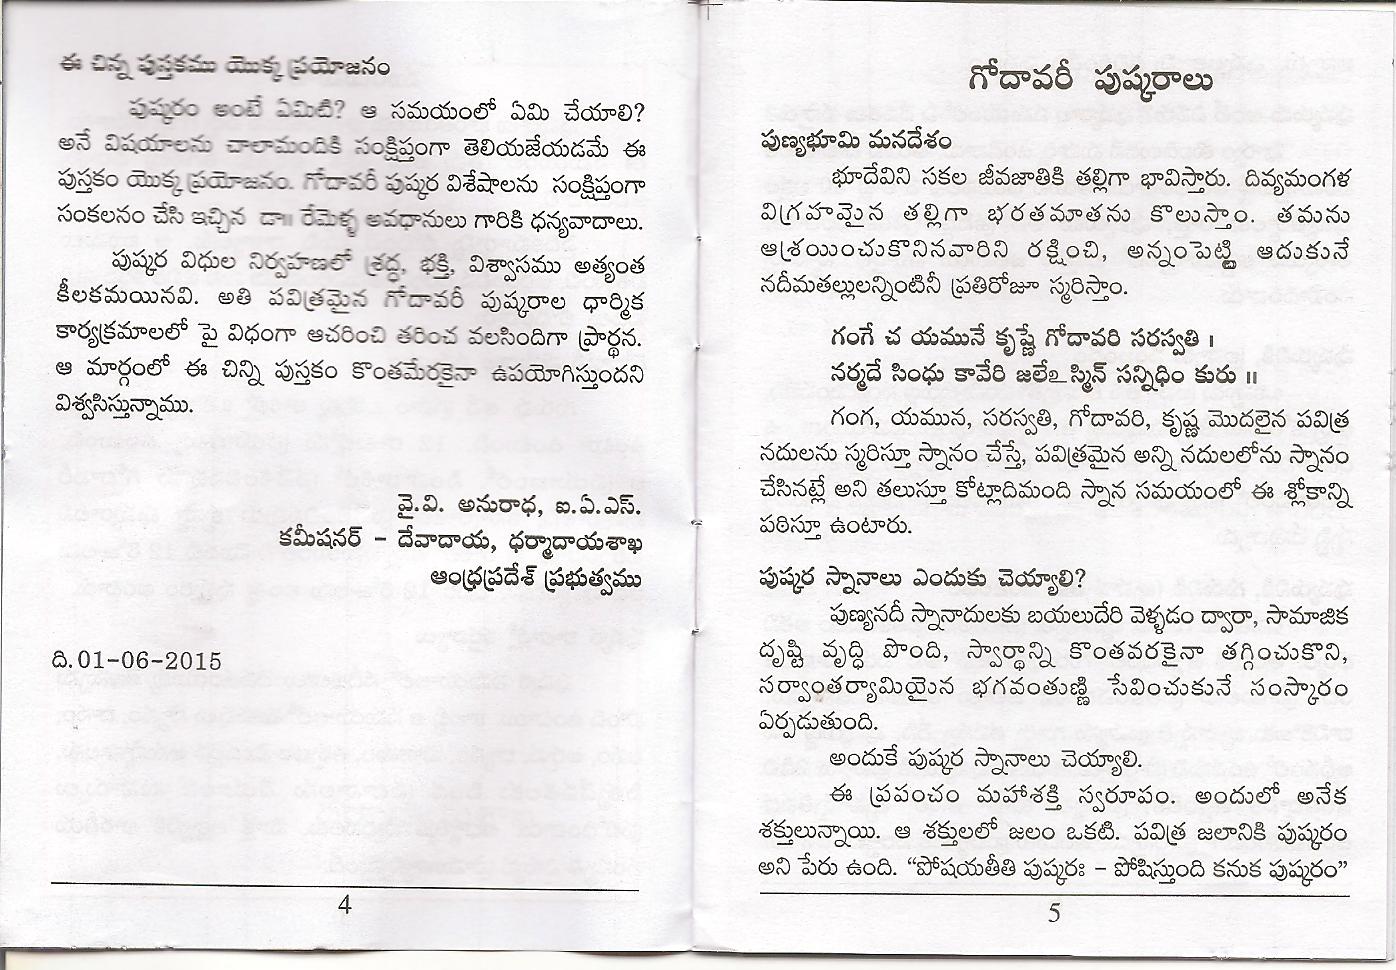 ఈ చిన్న పుస్తకము యొక్క ప్రయోజనం
పుష్కరం అంటే ఏమిటి? ఆ సమయంలో ఏమి చేయాలి?
అనే విషయాలను చాలామందికి సంక్షిప్తంగా తెలియజేయడమే ఈ
పుస్తకం యొక్క ప్రయోజనం. గోదావరీ పుష్కర విశేషాలను సంక్షిప్తంగా
సంకలనం చేసి ఇచ్చిన డా॥ రేమెళ్ళ అవధానులు గారికి ధన్యవాదాలు.
పుష్కర విధుల నిర్వహణలో శ్రద్ధ, భక్తి, విశ్వాసము అత్యంత
కీలకమయినవి. అతి పవిత్రమైన గోదావరీ పుష్కరాల ధార్మిక
కార్యక్రమాలలో పై విధంగా ఆచరించి తరించ వలసిందిగా ప్రార్థన.
ఆ మార్గంలో ఈ చిన్ని పుస్తకం కొంతమేరకైనా ఉపయోగిస్తుందని
విశ్వసిస్తున్నాము.
వై.వి. అనురాధ, ఐ.ఏ.ఎస్.
కమీషనర్ - దేవాదాయ, ధర్మాదాయశాఖ
ఆంధ్రప్రదేశ్ ప్రభుత్వము
ది.01-06-2015
4
గోదావరీ పుష్కరాలు
పుణ్యభూమి మనదేశం
భూదేవిని సకల జీవజాతికి తల్లిగా భావిస్తారు. దివ్యమంగళ
విగ్రహమైన తల్లిగా భరతమాతను కొలుస్తాం. తమను
ఆశ్రయించుకొనినవారిని రక్షించి, అన్నంపెట్టి ఆదుకునే
నదీమతల్లులన్నింటినీ ప్రతిరోజూ స్మరిస్తాం.
గంగే చ యమునే కృష్ణే గోదావరి సరస్వతి ।
నర్మదే సింధు కావేరి జలేఽ స్మిన్ సన్నిధిం కురు ॥
గంగ, యమున, సరస్వతి, గోదావరి, కృష్ణ మొదలైన పవిత్ర
నదులను స్మరిస్తూ స్నానం చేస్తే, పవిత్రమైన అన్ని నదులలోను స్నానం
చేసినట్లే అని తలుస్తూ కోట్లాదిమంది స్నాన సమయంలో ఈ శ్లోకాన్ని
పఠిస్తూ ఉంటారు.
పుష్కర స్నానాలు ఎందుకు చెయ్యాలి?
పుణ్యనదీ స్నానాదులకు బయలుదేరి వెళ్ళడం ద్వారా, సామాజిక
దృష్టి వృద్ధి పొంది, స్వార్థాన్ని కొంతవరకైనా తగ్గించుకొని,
సర్వాంతర్యామియైన భగవంతుణ్ణి సేవించుకునే సంస్కారం
ఏర్పడుతుంది.
అందుకే పుష్కర స్నానాలు చెయ్యాలి.
ఈ ప్రపంచం మహాశక్తి స్వరూపం. అందులో అనేక
శక్తులున్నాయి. ఆ శక్తులలో జలం ఒకటి. పవిత్ర జలానికి పుష్కరం
అని పేరు ఉంది. “పోషయతీతి పుష్కరః - పోషిస్తుంది కనుక పుష్కరం”
5